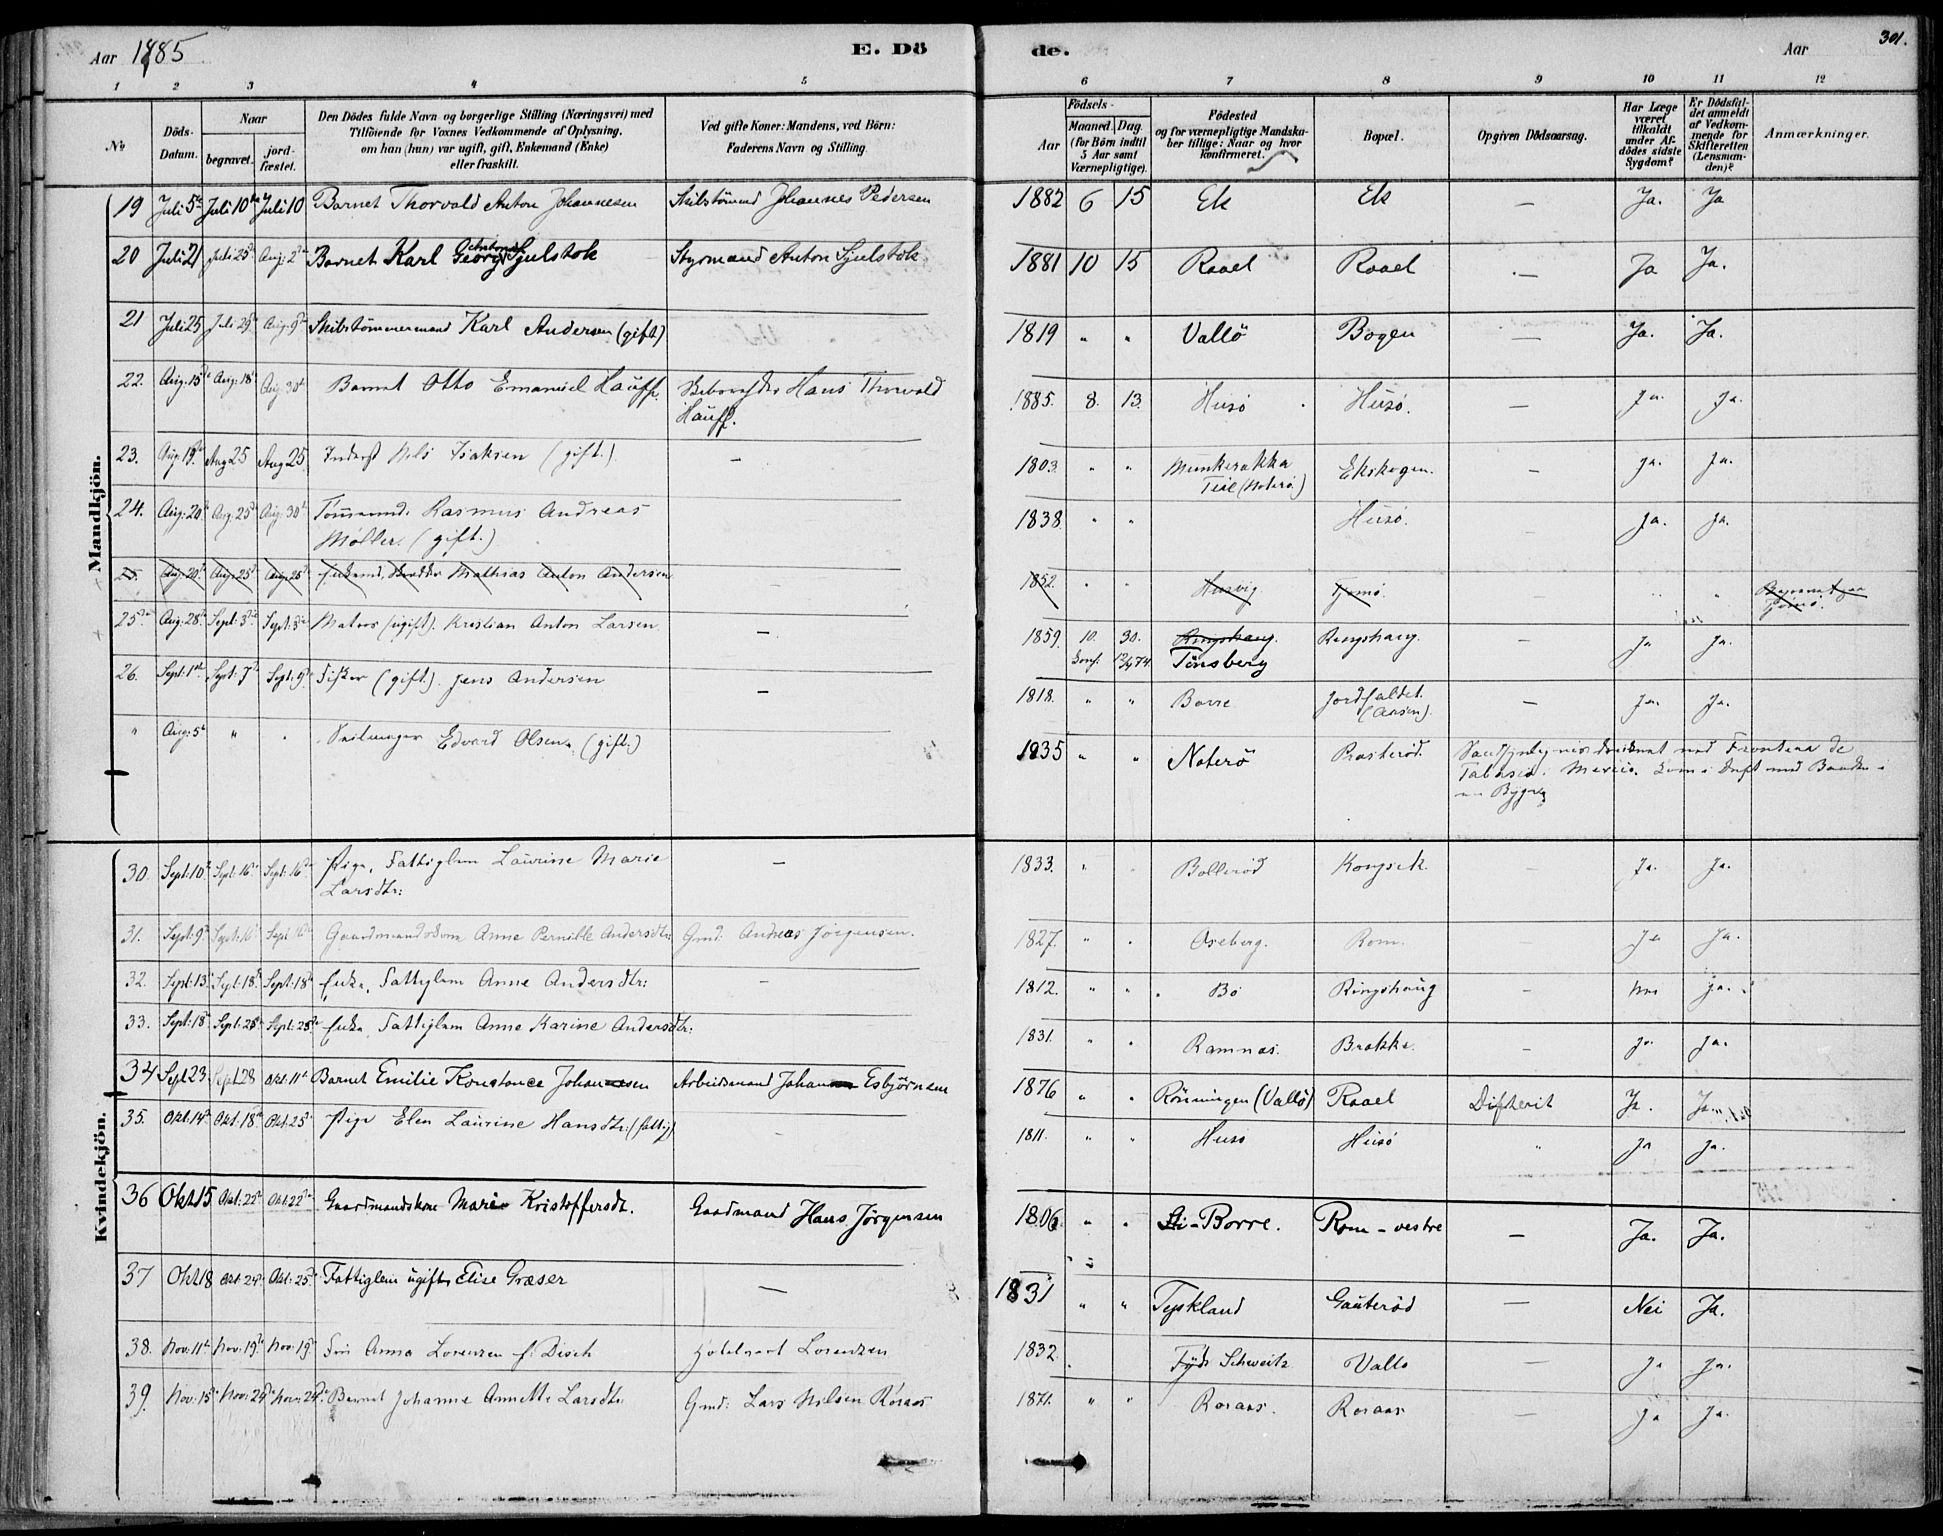 Aar 1885
E. Dö
de.
Aar
301.
1 2 3 4 5 6 7 8 9 10 11 12
No
Döds-Datum.
Naar
begravet.
jord-fæstet.
Den Dödes fulde Navn og borgerlige Stilling (Næringsvei) med
Tilföiende for Voxnes Vedkommende af Oplysning.
om han (hun) var ugift, gift, Enkemand (Enke)
eller fraskilt.
Ved gifte Koner: Mandens, ved Börn:
Faderens Navn og Stilling.
Födsels-
Aar
Maaned. Dag.
(for Börn indtil
5 Aar samt
Værnepligtige).
Födested
og for værnepligtige Mandska-
ber tillige: Naar og hvor
konfirmeret.
Bopæl.
Opgiven Dödsaarsag.
Har Læge
været
tilkaldt
under Af-
dödes sidste
Sygdom?
Er Dödsfal-
det anmeldt
af Vedkom-
mende for
Skifteretten
(Lensman-
den)?
Anmærkninger.
Mandkjön.
19 Juli 5te Juli 10de Juli 10 Barnet Thorvald Anton Johannesen Skibstömmd Johannes Pedersen 1882 6 15 Ek Ek — Ja. Ja
20 Juli 21 Juli 25de Aug: 2de Barnet Karl Georg Sjulstok Styrmand Anton Sjulstok 1881 10 15 Raael Raael — Ja Ja.
21 Juli 25 Juli 29de Aug: 9de Skibstömmermand Karl Andersen (gift) 1819 " " Vallö Bogen — Ja. Ja.
22. Aug: 15de Aug: 18de Aug 30te Barnet Otto Emanuel Hauff. Hans Thorvald
Hauff.
1885. 8. 13. Husö Husö. — Ja. Ja.
23. Aug: 19de Aug 25 Aug 25 Inderst Nels Isaksen (gift.) — 1803 " " Munkerakka
Teie (Noterö) Ekskogen. — Ja. Ja.
24. Aug: 20de Aug: 25de Aug: 30te Tömmermd. Rasmus Andreas
Møller. (gift.)
1838 " " Husö. Ja. Ja.
25. Aug: 20de Aug: 25de Aug: 25de Enkemd. Mathias Anton Andersen — 1852. " " Husvig. Tjømø. — " "
Tjömö.
25de Aug: 28de Sept: 3die Sept: 3die Matros (ugift). Kristian Anton Larsen — 1859. 10. 30. Ringshaug. Ringshaug. — Ja Ja.
Konf: Tönsberg
26. Sept: 1ste Sept: 7de Sept: 9de Fisker (gift). Jens Andersen — 1818. " " Borre Jordfaldet.
(Aasen). — Ja. Ja.
" Aug: 5te " " Seilmager Edvard Olsen. (gift.) 1835 " " Noterö Prasteröd. Sandsynligvis druknet ved Frontera de
Tabasco i Mexico. Kom i Drift med Baaden i
en Byge
Kvindekjön.
30. Sept: 10de Sept: 16de Sept: 16de Pige, Fattiglem Laurine Marie
Larsdtr: — 1833. " " Bolleröd Kongsek — Ja. Ja.
31. Sept: 9de Sept: 16 Sept 16de Gaardmandskone Anne Pernille Andersdtr: Gmd: Andreas Jörgensen. 1827. " " Oseberg. Rom. — Ja Ja.
32. Sept: 13de Sept: 18de Sept: 18de Enke, Fattiglem Anne Andersdtr: — 1812. " " Bö Ringshaug — Ja.
33. Sept: 18de Sept: 25de Sept: 25de Enke, Fattiglem Anne Karine Andersdtr: 1831. " " Ramnæs. Brekke. — Ja Ja.
34 Sept 23 Sept 28 Okt: 11te Barnet Emilie Konstance Johannesen Arbeidsmand Johan Esbjörnsen 1876 " " Rönningen (Vallö) Raael Difterit Ja. Ja.
35. Okt: 14de Okt: 18de Okt: 25de Pige Elen Laurine Hansdtr: (fattig) — 1811. " " Husö Husö " Ja Ja.
36 Okt 15 Okt: 22de Okt: 22de Gaardmandskone Marie Kristoffersdt. Gaardmand Hans Jörgensen 1806 " " Borre. Rom - vestre — Ja. Ja.
37 Okt 18 Okt: 24de Okt: 25de Fattiglem ugift Elise Græser — 1831 " " Tyskland Gauteröd — Nei Ja.
38. Nov: 11te Nov: 19de Nov: 19de Fru Anna Lorenzen f: Disch Hotelvert Lorenzen 1832. Tydsk Schweitz Vallö — Ja Ja.
39. Nov: 15de Nov: 24de Nov: 24de Barnet Johanne Annette Larsdtr: Gmd: Lars Nilsen Roraas 1871. " " Roraas. Roraas — Ja Ja.